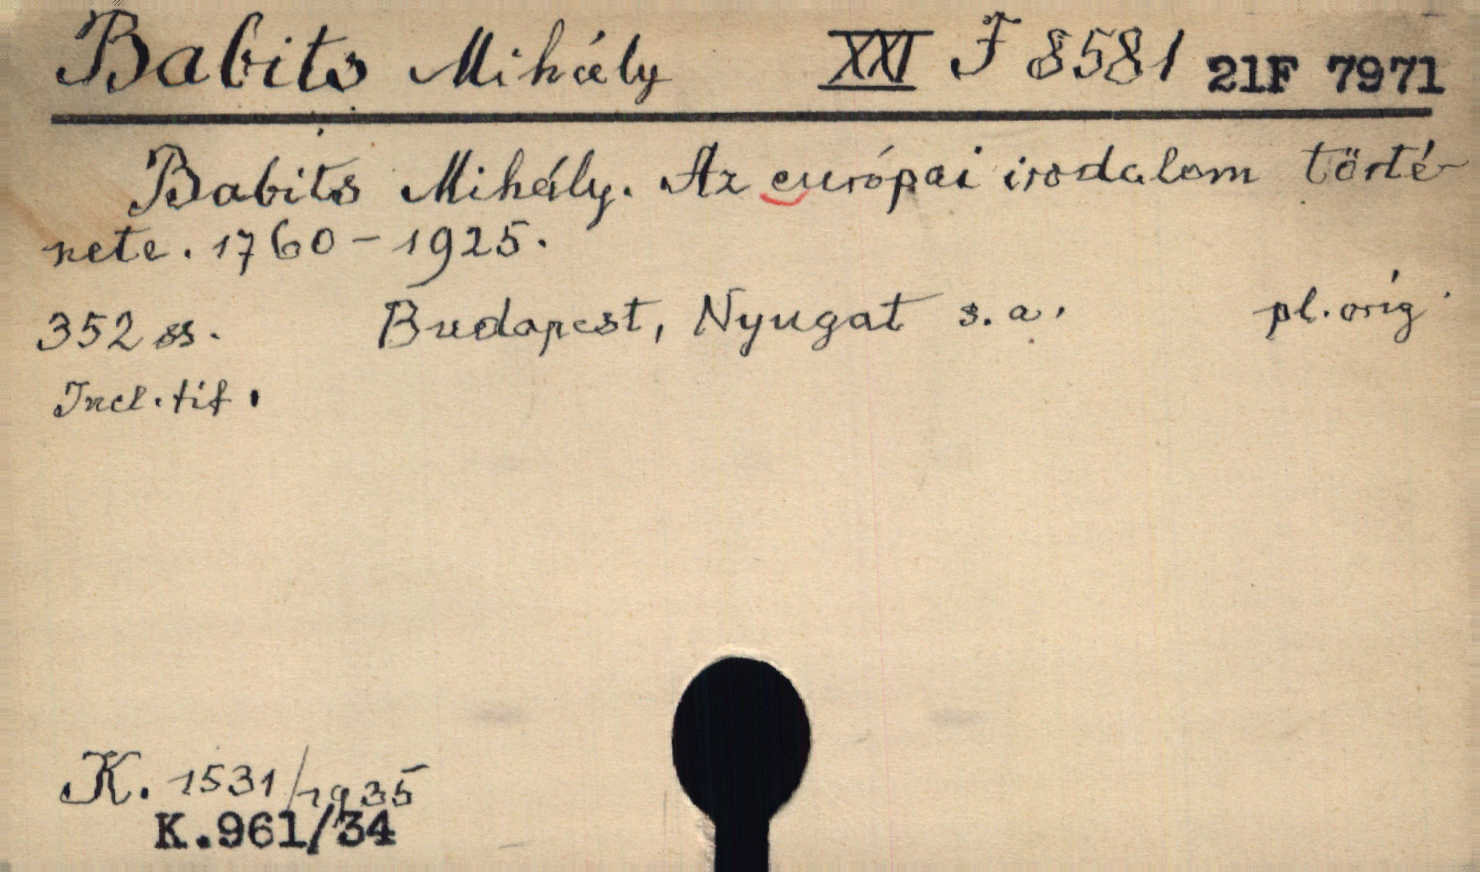 Babits Mihály XXI F 8581 21F 7971
Babits Mihály. Az európai irodalom törté-
nete. 1760-1925.
352 ss. Budapest, Nyugat s.a. pl. orig.
Incl. tif.
K. 1531/1935
K.961/34